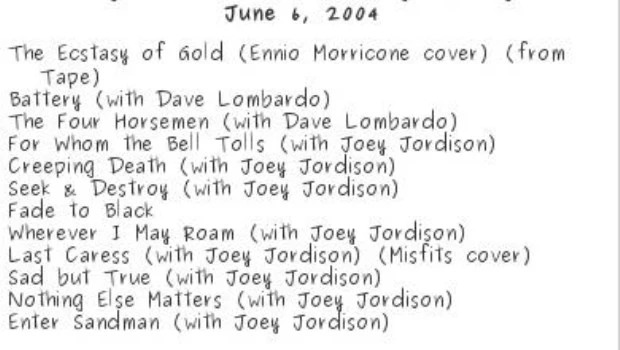 June 6, 2004
The Ecstasy of Gold (Ennio Morricone cover) (from
Tape)
Battery (with Dave Lombardo)
The Four Horsemen (with Dave Lombardo)
For Whom the Bell Tolls (with Joey Jordison)
Creeping Death (with Joey Jordison)
Seek & Destroy (with Joey Jordison)
Fade to Black
Wherever I May Roam (with Joey Jordison)
Last Caress (with Joey Jordison) (Misfits cover)
Sad but True (with Joey Jordison)
Nothing Else Matters (with Joey Jordison)
Enter Sandman (with Joey Jordison)